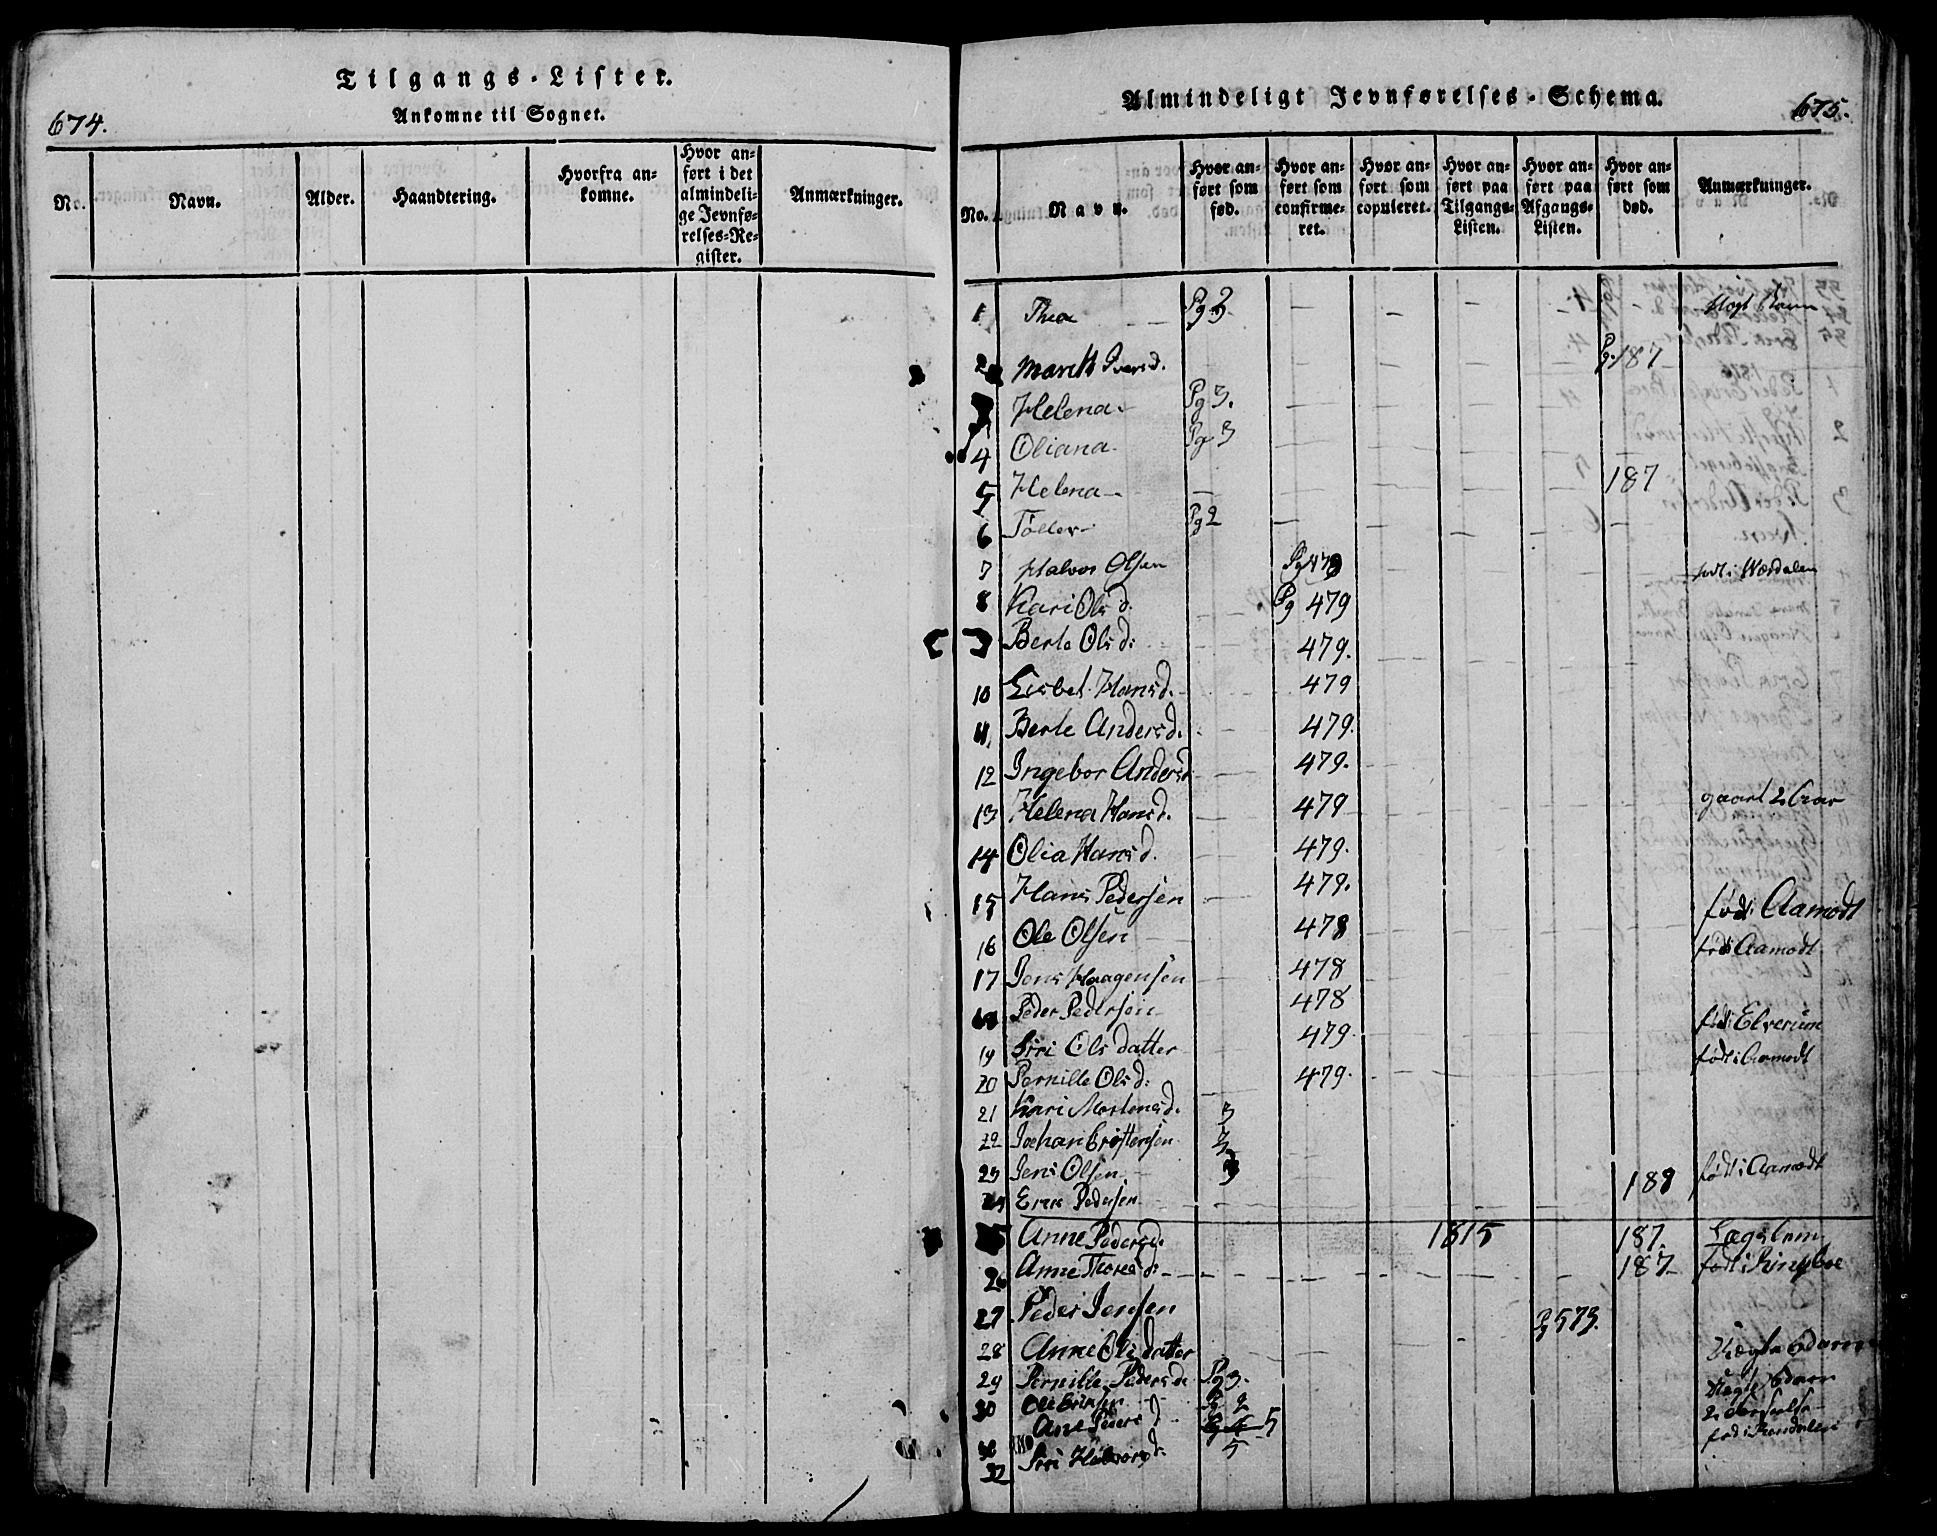 674.
Tilgangs-Lister.
Ankomne til Sognet.
No. Navn. Alder. Haandtering. Hvorfra ankomne. Hvor anført i det almindelige Jevnførelses-Register. Anmærkninger.
Almindeligt Jevnførelses-Schema.
675.
No. Navn. Hvor anført som fød. Hvor anført som confirmeret. Hvor anført som copuleret. Hvor anført paa Tilgangs-Listen. Hvor anført paa Afgangs-Listen. Hvor anført som død. Anmærkninger.
1 Thea Pg 3
2 Marith Iversd. Pg. 187
Helena Pg 3.
4 Oliana Pg 3
5 Helena 187
6 Töller Pg 2
7 Halvor Olsen Pg 479 født i
8 Kari Olsd. Pg 479
Berte Olsd: 479.
10 Lisbet Hansd. 479
11 Berte Andersd. 479.
12 Ingebor Andersd 479.
13 Helena Hansd. 479
14 Olia Hansd. 479.
15 Hans Pedersen 479. født i Aamodt
16 Ole Olsen 478 født i Aamodt
17 Jens Haagensen 478
Peder Pedersen 478 født i Elverum
19 Siri Olsdatter 479. født i Aamodt
20 Pernille Olsd: 479.
21 Kari Mortensd. 3
22 Johan 3
23 Jens Olsen 3 født i Aamodt
24 Pedersen 188
Anne Pedersd. 1815 187.
26 Anne Thoresd: 187 født i Ringeboe
27 Peder Jensen Pg 573.
28 Anne Olsdatter
29 Pernille Pedersd. Pg 3.
30 Ole Pg 2
Ane Peders d 5
32 Siri Halvorsd. 5